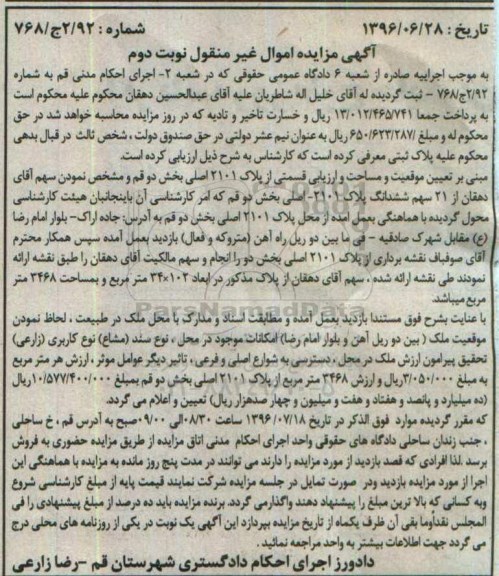 تاریخ : ۱۳۹۶/۰۶/۲۸ شماره : ۲/۹۲ج/۷۶۸
آگهی مزایده اموال غیر منقول نوبت دوم
به موجب اجراییه صادره از شعبه ۶ دادگاه عمومی حقوقی که در شعبه ۲- اجرای احکام مدنی قم به شماره
۲/۹۲ج/۷۶۸ - ثبت گردیده له آقای خلیل اله شاطریان علیه آقای عبدالحسین دهقان محکوم علیه محکوم است
به پرداخت جمعا ۱۳/۰۱۲/۴۶۵/۷۴۱ ریال و خسارت تاخیر و تادیه که در روز مزایده محاسبه خواهد شد در حق
محکوم له و مبلغ /۶۵۰/۶۲۳/۲۸۷ ریال به عنوان نیم عشر دولتی در حق صندوق دولت ، شخص ثالث در قبال بدهی
محکوم علیه پلاک ثبتی معرفی کرده است که کارشناس به شرح ذیل ارزیابی کرده است.
مبنی بر تعیین موقعیت و مساحت و ارزیابی قسمتی از پلاک ۲۱۰۱ اصلی بخش دو قم و مشخص نمودن سهم آقای
دهقان از ۲۱ سهم ششدانگ پلاک ۲۱۰۱ اصلی بخش دو قم که امر کارشناسی آن باینجانبان هیئت کارشناسی
محول گردیده با هماهنگی بعمل آمده از محل پلاک ۲۱۰۱ اصلی بخش دو قم به آدرس: جاده اراک- بلوار امام رضا
(ع) مقابل شهرک صادقیه - فی ما بین دو ریل راه آهن (متروکه و فعال) بازدید بعمل آمده سپس همکار محترم
آقای صوفیاف نقشه برداری از پلاک ۲۱۰۱ اصلی بخش دو را انجام و سهم مالکیت آقای دهقان را طبق نقشه ارائه
نمودند طی نقشه ارائه شده ، سهم آقای دهقان از پلاک مذکور در ابعاد ۱۰۲×۳۴ متر مربع و بمساحت ۳۴۶۸ متر
مربع میباشد.
با عنایت بشرح فوق مستندا بازدید بعمل آمده و مطابقت اسناد و مدارک با محل ملک در طبیعت ، لحاظ نمودن
موقعیت ملک ( بین دو ریل آهن و بلوار امام رضا) امکانات موجود در محل ، نوع سند (مشاع) نوع کاربری (زارعی)
تحقیق پیرامون ارزش ملک در محل ، دسترسی به شوارع اصلی و فرعی ، تاثیر دیگر عوامل موثر ، ارزش هر متر مربع
به مبلغ ۳/۰۵۰/۰۰۰ ریال و ارزش ۳۴۶۸ متر مربع از پلاک ۲۱۰۱ اصلی بخش دو قم بمبلغ ۱۰/۵۷۷/۴۰۰/۰۰۰ ریال
(ده میلیارد و پانصد و هفتاد و هفت و میلیون و چهار صدهزار ریال) تعیین و اعلام می گردد.
که مقرر گردیده موارد فوق الذکر در تاریخ ۱۳۹۶/۰۷/۱۸ ساعت ۰۸/۳۰ الی ۰۹/۰۰ صبح به آدرس قم ، خ ساحلی
، جنب زندان ساحلی دادگاه های حقوقی واحد اجرای احکام مدنی اتاق مزایده از طریق مزایده حضوری به فروش
برسد .لذا افرادی که قصد بازدید از مورد مزایده را دارند می توانند در مدت پنج روز مانده به مزایده با هماهنگی این
اجرا از مورد مزایده بازدید ودر صورت تمایل در جلسه مزایده شرکت نمایند قیمت پایه از مبلغ کارشناسی شروع
وبه کسانی که بالا ترین مبلغ را پیشنهاد دهند واگذارمی گردد. برنده مزایده باید ده درصد از مبلغ پیشنهادی را فی
المجلس نقداًوما بقی آن ظرف یکماه از تاریخ مزایده بپردازد این آگهی یک نوبت در یکی از روزنامه های محلی درج
می گردد جهت اطلاعات بیشتر به واحد مراجعه نمائید .
دادورز اجرای احکام دادگستری شهرستان قم –رضا زارعی